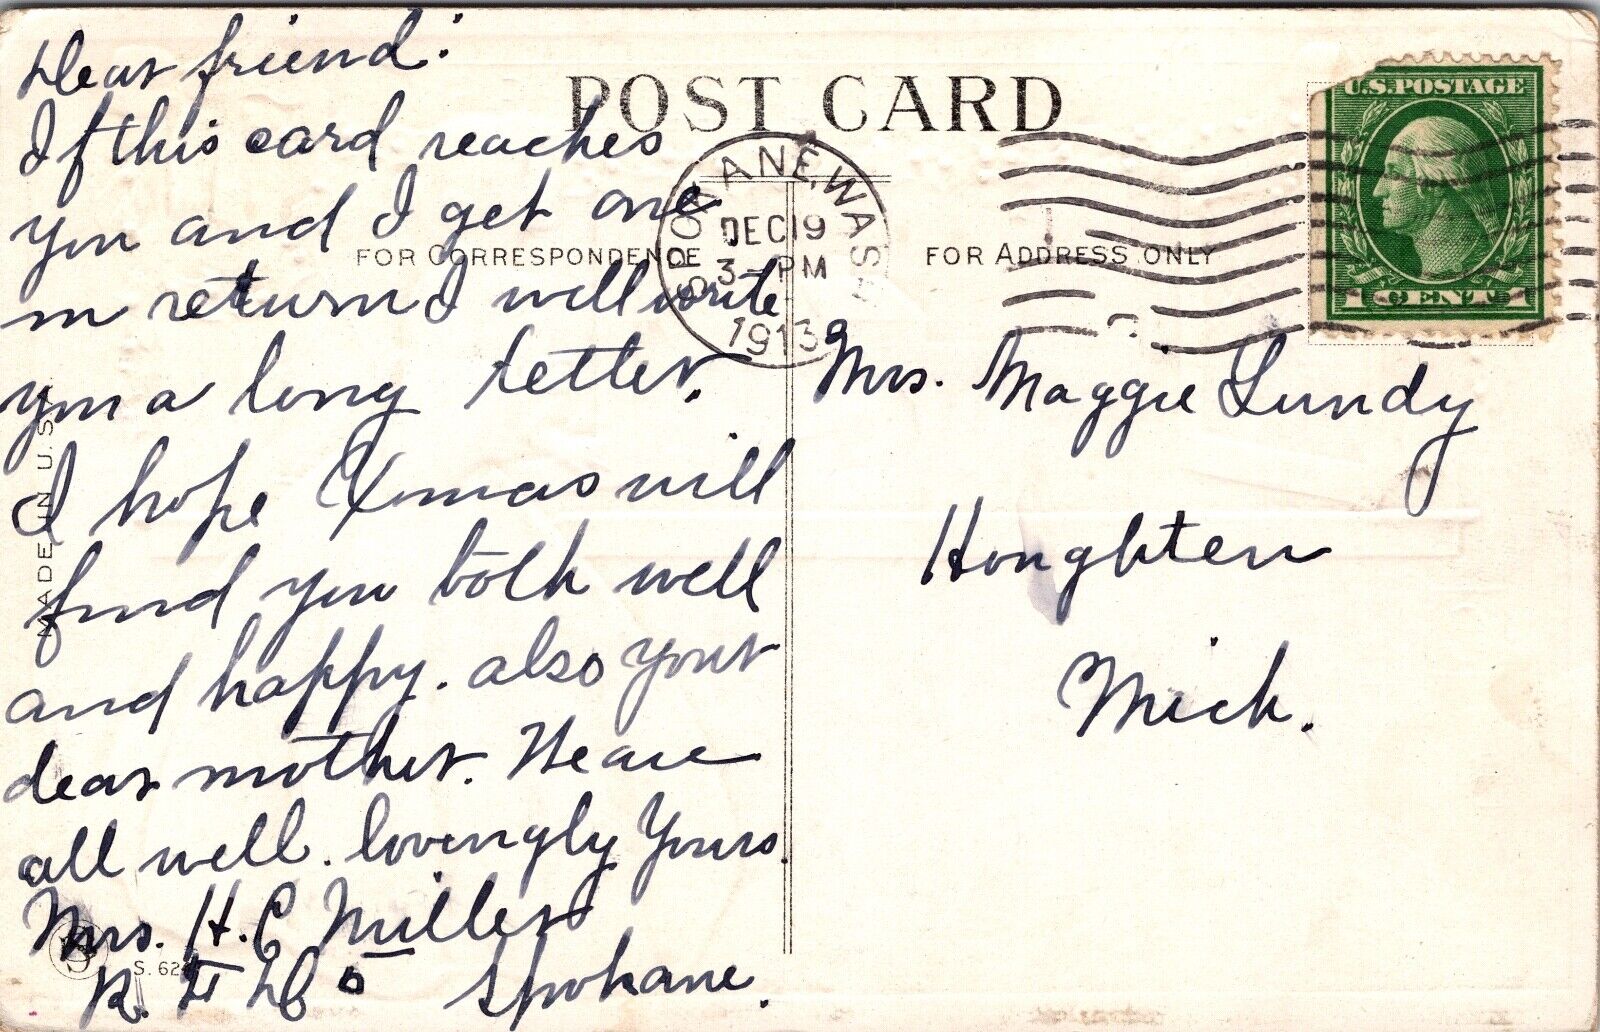 Dear friend:
If this card reaches
you and I get one
in return I will write
you a long letter.
I hope Xmas will
find you both well
and happy. also your
dear mother. We are
all well. lovingly Yours.
Mrs. H. C. Miller
R. F. D. 5 Spokane.
POST CARD
FOR CORRESPONDENCE
FOR ADDRESS ONLY
SPOKANE, WASH.
DEC 19
3 PM
1913
U.S. POSTAGE
1 CENT 1
Mrs. Maggie Lundy
Houghten
Mich.
MADE IN U.S.
S. 62